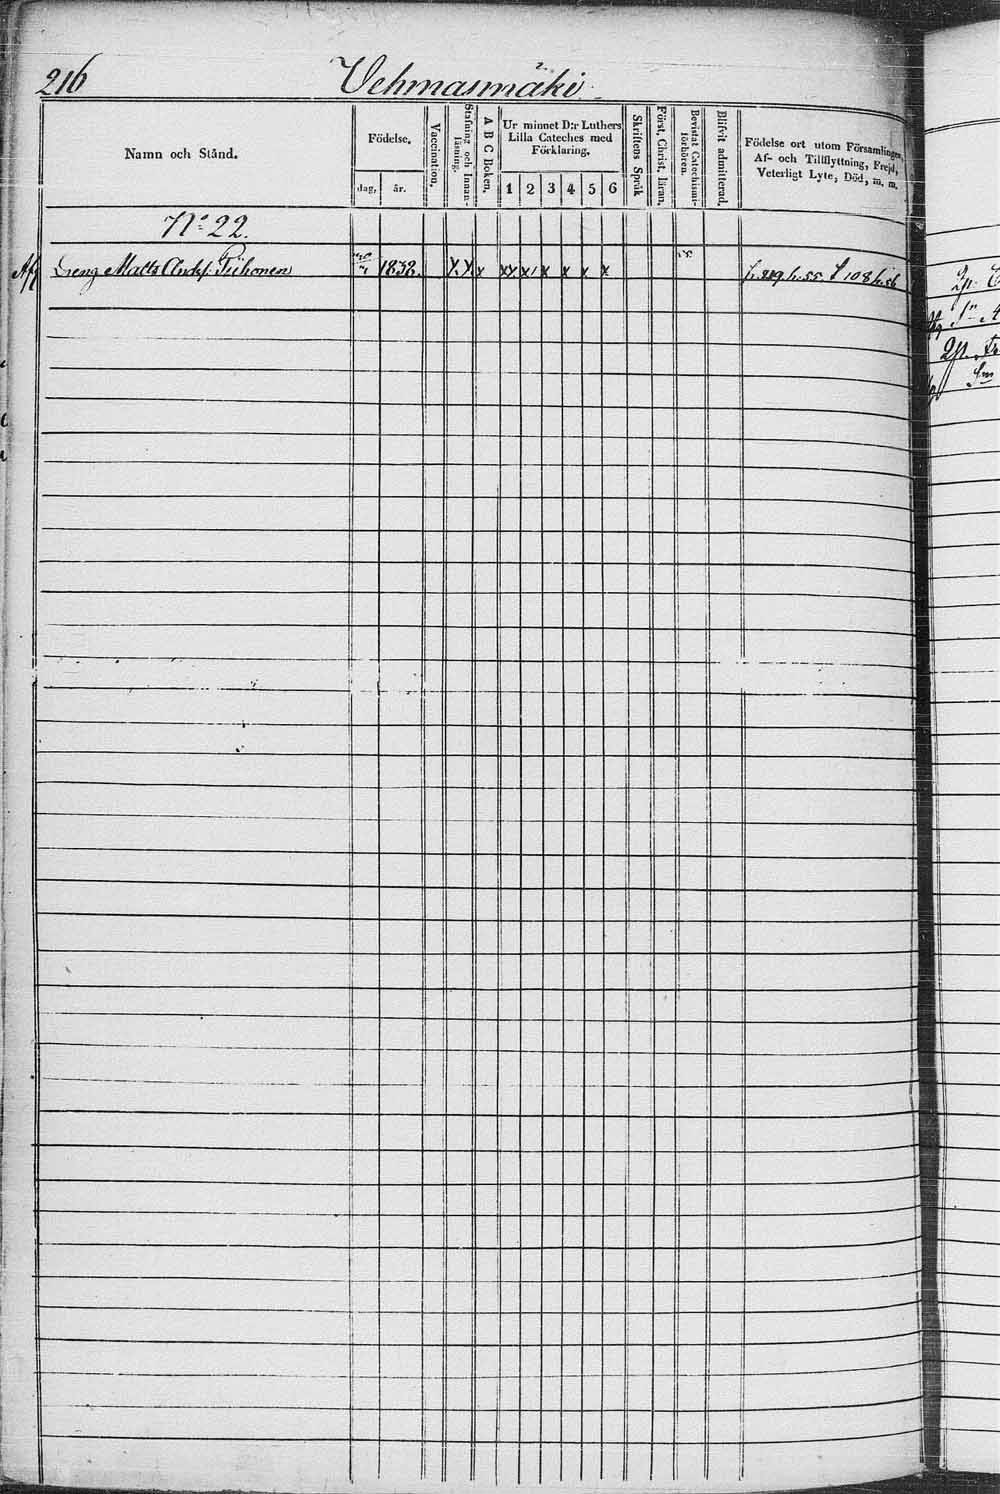 216
Vehmasmäki
Namn och Stånd.
Födelse.
dag, år.
Vaccination.
Stafning och Innanläsning.
A B C Boken.
Ur minnet D:r Luthers
Lilla Cateches med
Förklaring.
1 2 3 4 5 6
Skriftens Språk
Först. Christ. läran.
Bevistat Catechismiförhören.
Blifvit admitterad.
Födelse ort utom Församlingen,
Af- och Tillflyttning, Frejd,
Veterligt Lyte, Död, m. m.
No 22.
Dreng Matts Andsf. Piihonen 1838. x x x xx x x x x x 55 fr. 219 h. 55. t 108 h. 56